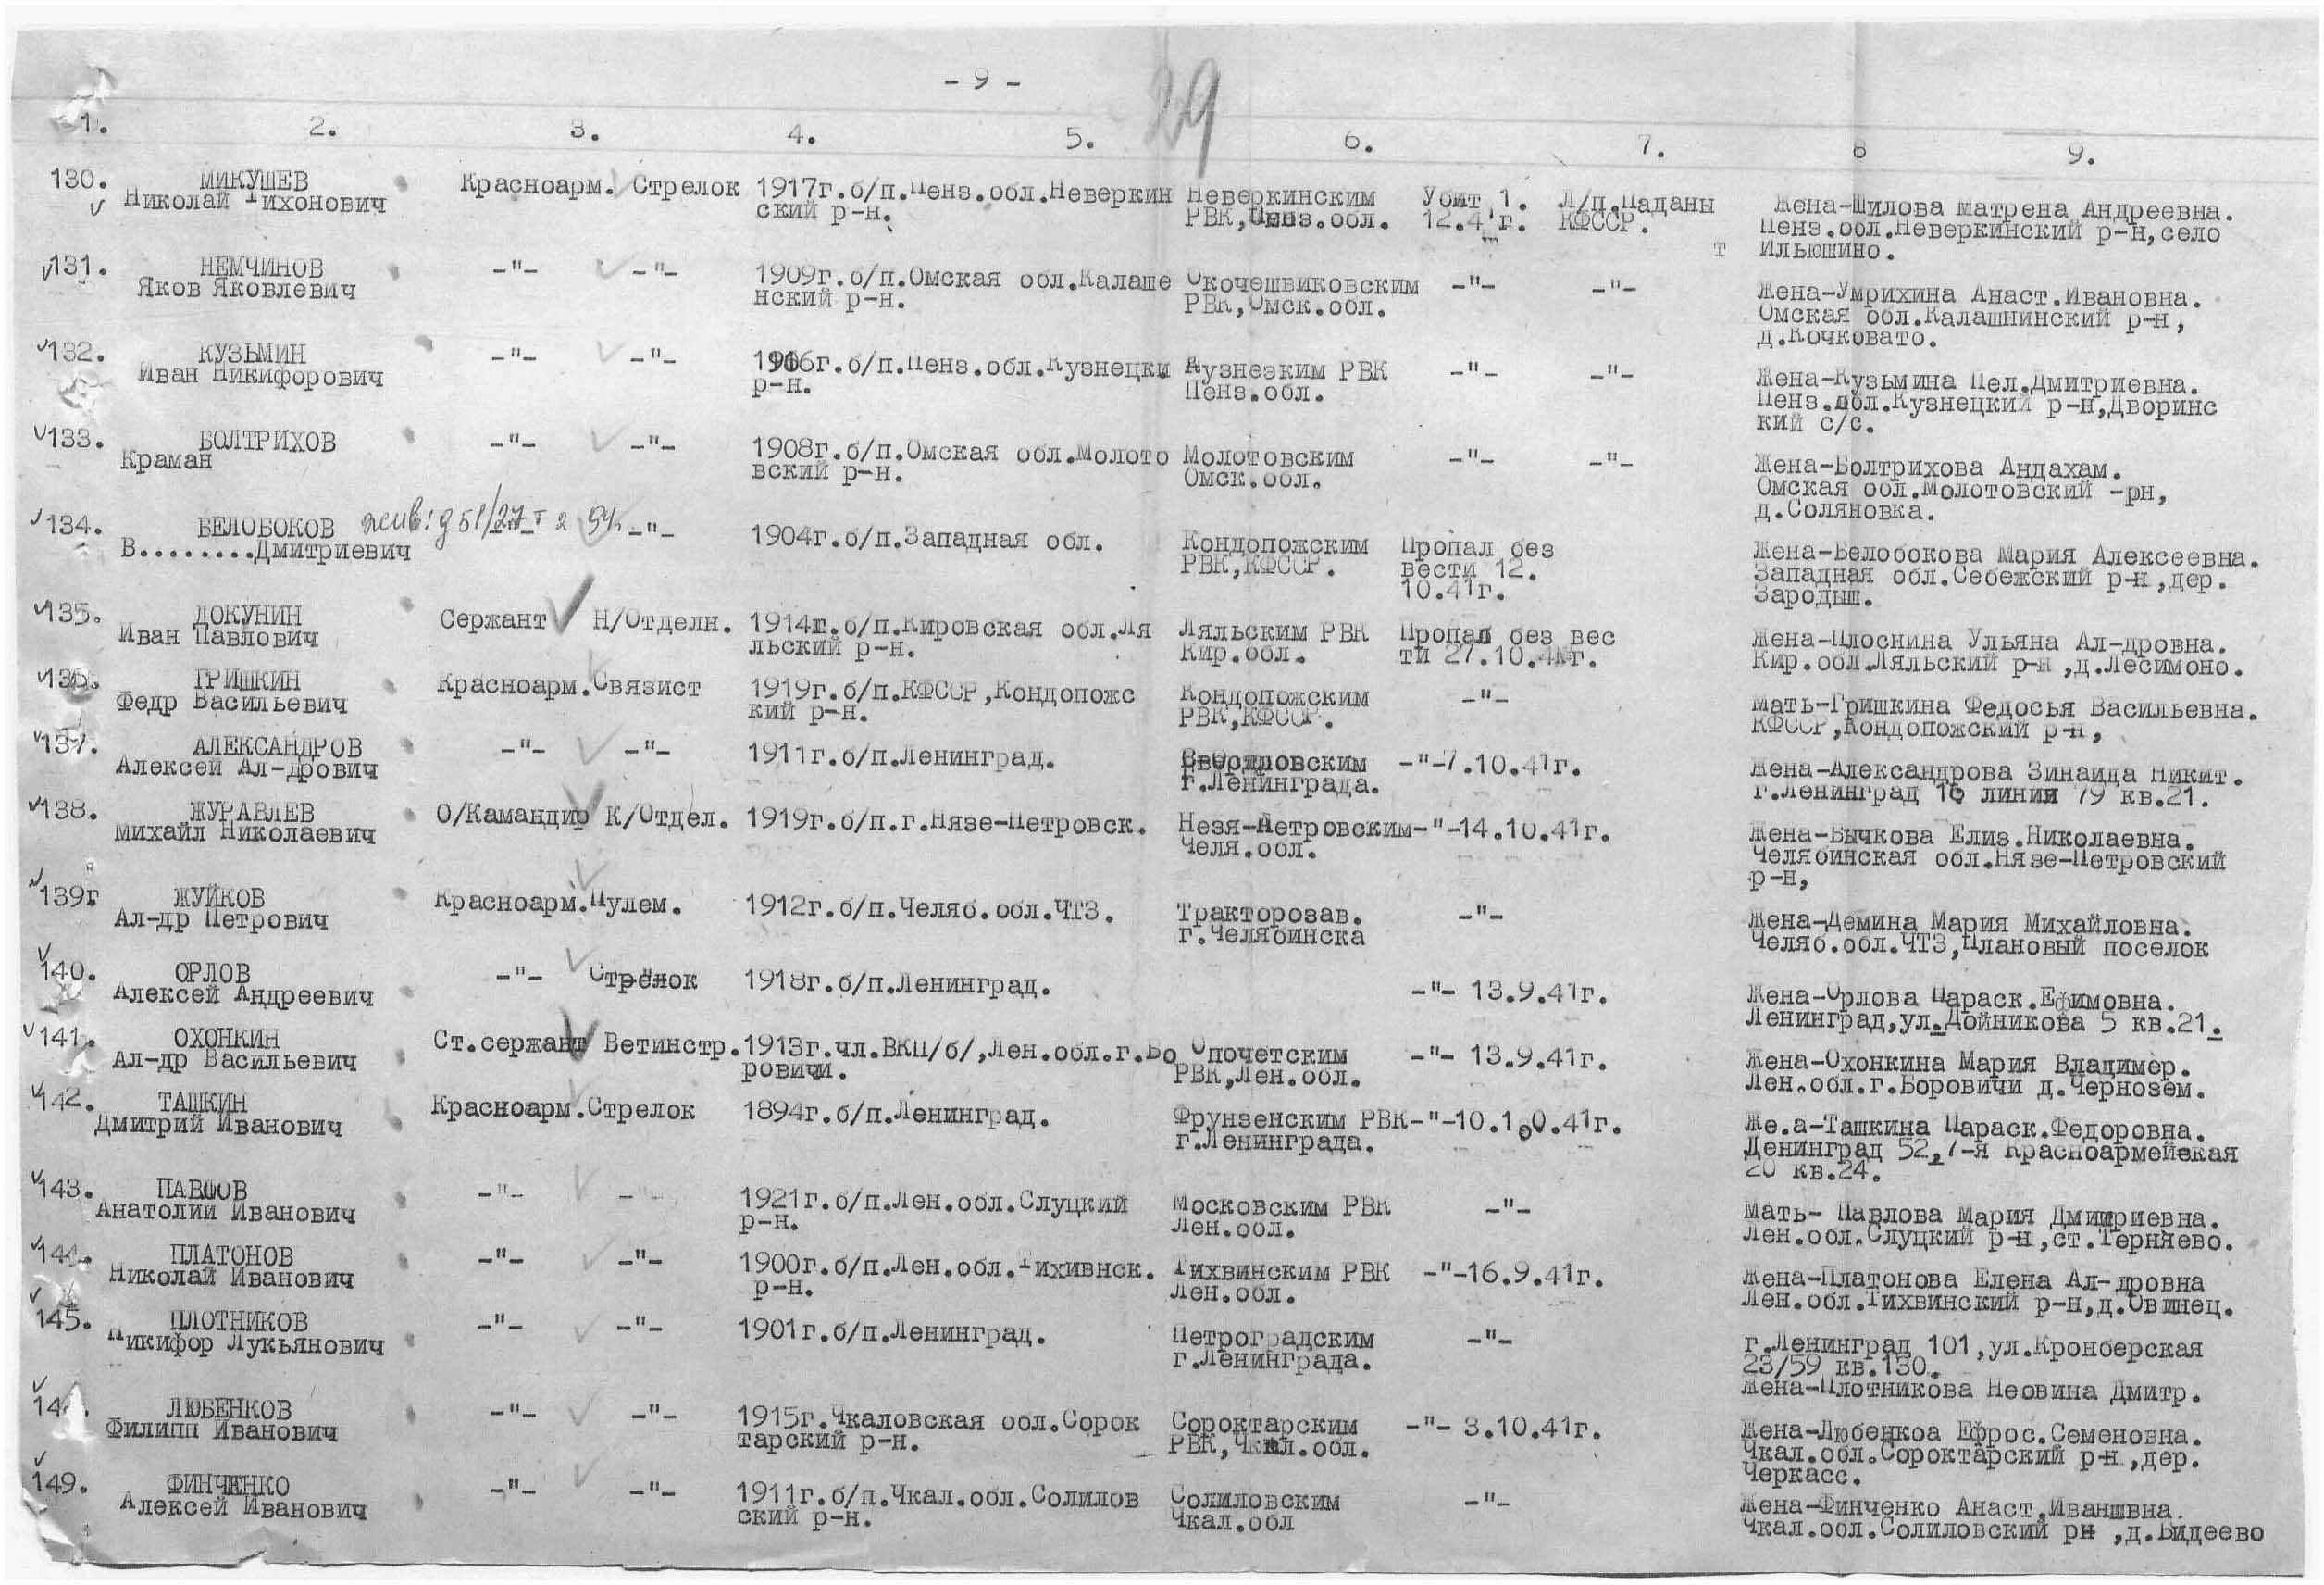 - 9 -
29
1. 2. 3. 4. 5. 6. 7. 8 9.
130. МИКУШЕВ Красноарм. Стрелок 1917г.б/п.Пенз.обл.Неверкин Неверкинским Убит 1. Л/п.Паданы Жена-Шилова Матрена Андреевна.
Николай Тихонович ский р-н. РВК,Пенз.обл. 12.41г. КФССР. Пенз.обл.Неверкинский р-н,село
Ильюшино.
131. НЕМЧИНОВ -"- -"- 1909г.б/п.Омская обл.Калаше Окочешвиковским -"- -"- Жена-Умрихина Анаст.Ивановна.
Яков Яковлевич нский р-н. РВК,Омск.обл. Омская обл.Калашнинский р-н,
д.Кочковато.
132. КУЗЬМИН -"- -"- 1906г.б/п.Пенз.обл.Кузнецки Кузнезким РВК -"- -"- Жена-Кузьмина Пел.Дмитриевна.
Иван Никифорович р-н. Пенз.обл. Пенз.обл.Кузнецкий р-н,Дворинс
кий с/с.
133. БОЛТРИХОВ -"- -"- 1908г.б/п.Омская обл.Молото Молотовским -"- -"- Жена-Болтрихова Андахам.
Краман вский р-н. Омск.обл. Омская обл.Молотовский -рн,
д.Соляновка.
134. БЕЛОБОКОВ -"- 1904г.б/п.Западная обл. Кондопожским Пропал без Жена-Белобокова Мария Алексеевна.
В........Дмитриевич РВК,КФССР. вести 12. Западная обл.Себежский р-н,дер.
10.41г. Зародыш.
135. ДОКУНИН Сержант Н/Отделн. 1914г.б/п.Кировская обл.Ля Ляльским РВК Пропал без вес Жена-Плоснина Ульяна Ал-дровна.
Иван Павлович льский р-н. Кир.обл. ти 27.10.41г. Кир.обл.Ляльский р-н,д.Лесимоно.
136. ГРИШКИН Красноарм.Связист 1919г.б/п.КФССР,Кондопожс Кондопожским -"- Мать-Гришкина Федосья Васильевна.
Федр Васильевич кий р-н. РВК,КФССР. КФССР,Кондопожский р-н,
137. АЛЕКСАНДРОВ -"- -"- 1911г.б/п.Ленинград. Свердловским -"-7.10.41г. Жена-Александрова Зинаида Никит.
Алексей Ал-дрович г.Ленинграда. г.Ленинград 16 линия 79 кв.21.
138. ЖУРАВЛЕВ О/Камандир К/Отдел. 1919г.б/п.г.Нязе-Петровск. Незя-Петровским-"-14.10.41г. Жена-Бычкова Елиз.Николаевна.
Михайл Николаевич Челя.обл. Челябинская обл.Нязе-Петровский
р-н,
139г ЖУЙКОВ Красноарм.Пулем. 1912г.б/п.Челяб.обл.ЧТЗ. Тракторозав. -"- Жена-Демина Мария Михайловна.
Ал-др Петрович г.Челябинска Челяб.обл.ЧТЗ,Плановый поселок
140. ОРЛОВ -"- Стрелок 1918г.б/п.Ленинград. -"- 13.9.41г. Жена-Орлова Параск.Ефимовна.
Алексей Андреевич Ленинград,ул.Дойникова 5 кв.21.
141. ОХОНКИН Ст.сержант Ветинстр.1913г.чл.ВКП/б/,Лен.обл.г.Бо Опочетским -"- 13.9.41г. Жена-Охонкина Мария Владимер.
Ал-др Васильевич ровичи. РВК,Лен.обл. Лен.обл.г.Боровичи д.Чернозем.
142. ТАШКИН Красноарм.Стрелок 1894г.б/п.Ленинград. Фрунзенским РВК-"-10.10.41г. Же.а-Ташкина Параск.Федоровна.
Дмитрий Иванович г.Ленинграда. Денинград 52,7-я Красноармейская
20 кв.24.
143. ПАВЛОВ -"- -"- 1921г.б/п.Лен.обл.Слуцкий Московским РВК -"- Мать- Павлова Мария Дмитриевна.
Анатолий Иванович р-н. Лен.обл. Лен.обл.Слуцкий р-н,ст.Терняево.
144. ПЛАТОНОВ -"- -"- 1900г.б/п.Лен.обл.Тихивнск. Тихвинским РВК -"-16.9.41г. Жена-Платонова Елена Ал-дровна
Николай Иванович р-н. Лен.обл. Лен.обл.Тихвинский р-н,д.Овинец.
145. ПЛОТНИКОВ -"- -"- 1901г.б/п.Ленинград. Петроградским -"- г.Ленинград 101,ул.Кронберская
Никифор Лукьянович г.Ленинграда. 23/59 кв.130.
Жена-Плотникова Неовина Дмитр.
14 ЛЮБЕНКОВ -"- -"- 1915г.Чкаловская обл.Сорок Сороктарским -"- 3.10.41г. Жена-Любенкоа Ефрос.Семеновна.
Филипп Иванович тарский р-н. РВК,Чкал.обл. Чкал.обл.Сороктарский р-н,дер.
Черкасс.
149. ФИНЧЕНКО -"- -"- 1911г.б/п.Чкал.обл.Солилов Солиловским -"- Жена-Финченко Анаст.Ивановна.
Алексей Иванович ский р-н. Чкал.обл Чкал.обл.Солиловский рн ,д.Видеево